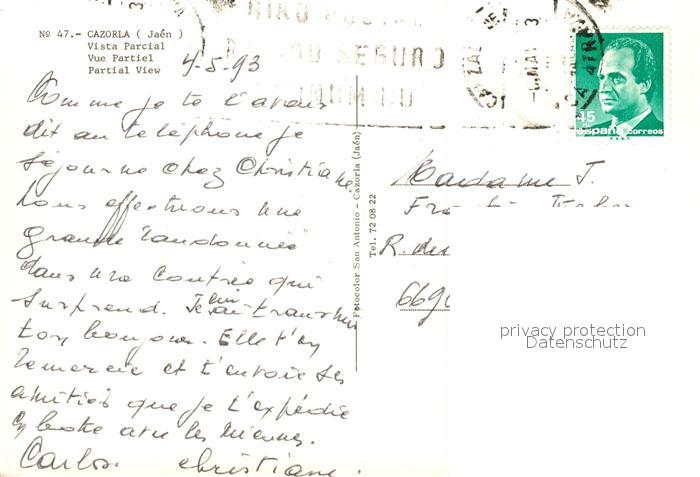 Nº 47.- CAZORLA ( Jaén )
Vista Parcial
Vue Partiel
Partial View
GIRO POSTAL
SEGURO
4-5-93
Comme je te l'avais
dit au téléphone je
séjourne chez Christiane.
Nous effectuons une
grande randonnée
dans une contrée qui
surprend. Je lui ai transmis
ton bonjour. Elle t'en
remercie et t'envoie ses
amitiés que je t'expédie
en botte avec les miennes.
Carlos christiane.
Fotocolor San Antonio - Cazorla (Jaén)
Tel. 72 08 22
45
españa correos
Madame J.
R. des
privacy protection
Datenschutz